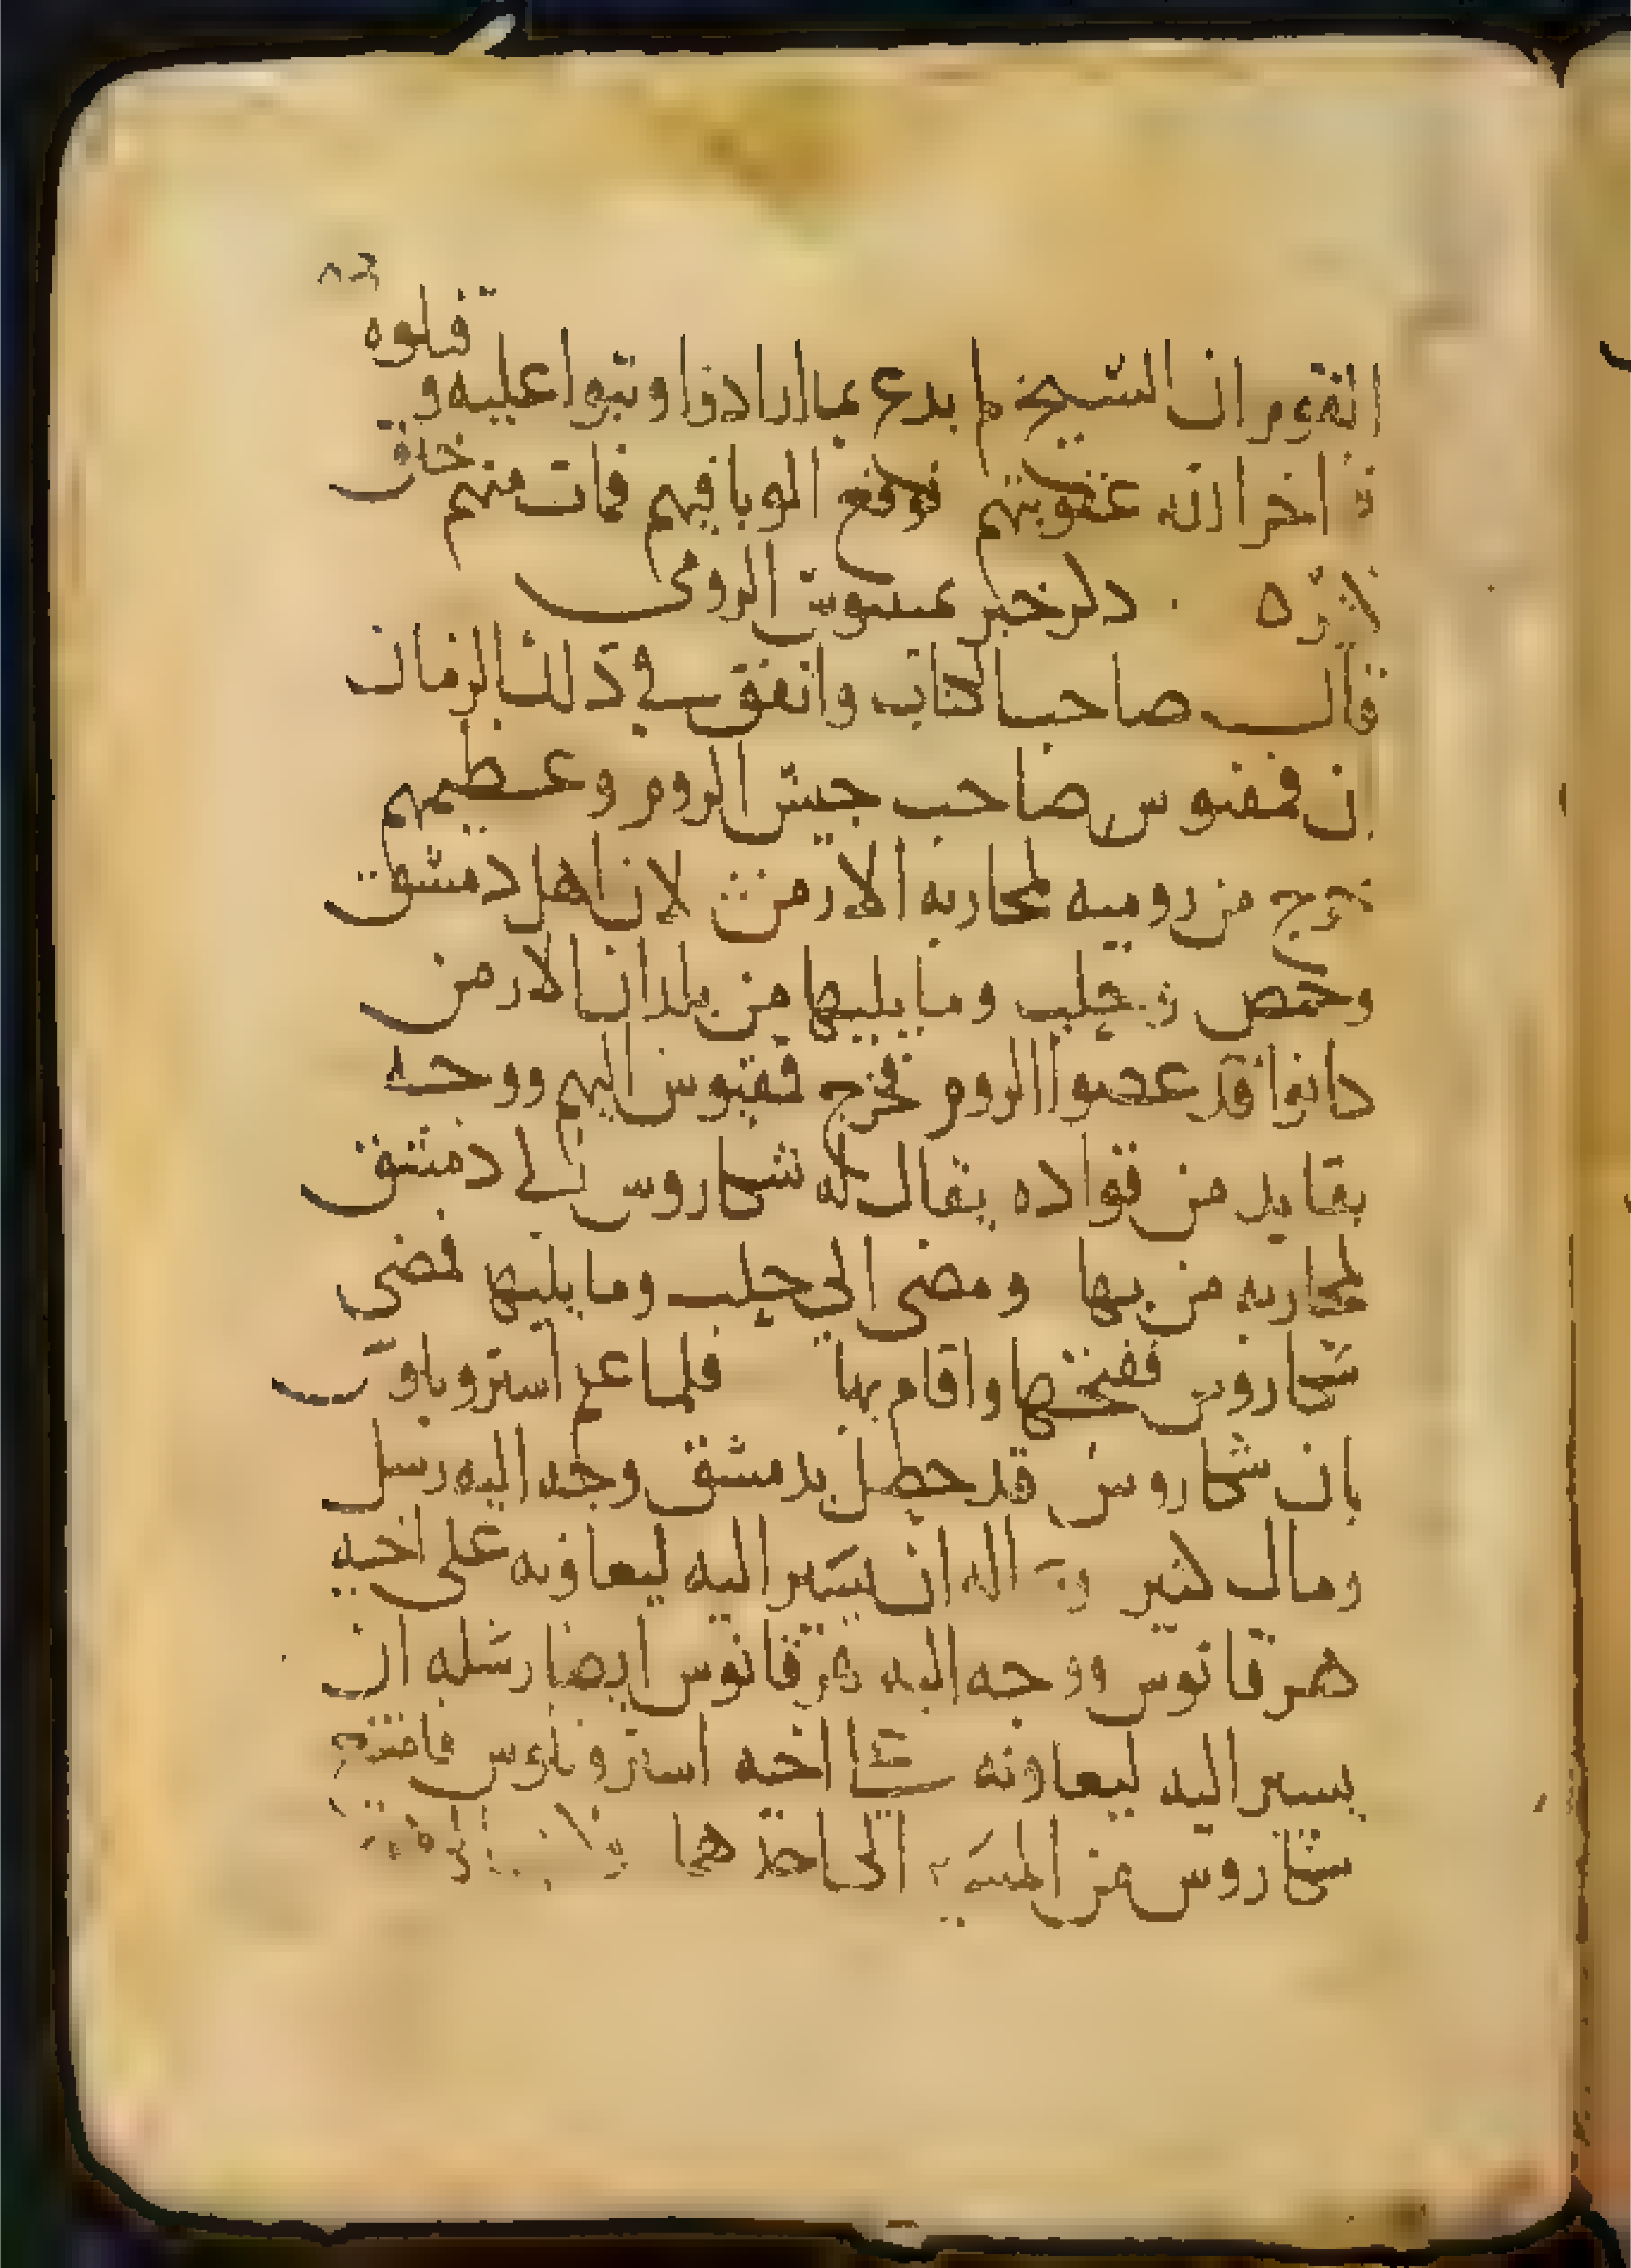 القوم ان الشيخ لم يدع بما ارادوا وثبوا عليه و
قتلوه
اخر الله عقوبتهم فوقع الوبا فيهم فمات منهم خلق
ذكر خبر الرومى
قال صاحب الكتاب واتفق في ذلك الزمان
ان فمفنوس صاحب جيش الروم وعظيمهم
خرج من روميه لمحاربه الارمن لان اهل دمشق
وحمص وحلب وما يليها من بلدان الارمن
كانوا قد عصوا الروم فخرج فمفنوس اليهم ووجه
بقايد من قواده يقال له شكاروس الى دمشق
لمحاربه من بها ومضى الي حلب وما يليها فمضى
شكاروس ففتحها واقام بها فلما علم
بان شكاروس قد حصل بدمشق وجه اليه رسل
ومال كثير وساله ان يسير اليه ليعاونه على اخيه
هرقانوس ووجه اليه هرقانوس ايضا رسله ان
يسير اليه ليعاونه على اخيه استروبلوس فامتنع
شكاروس من المسير الى احدهما